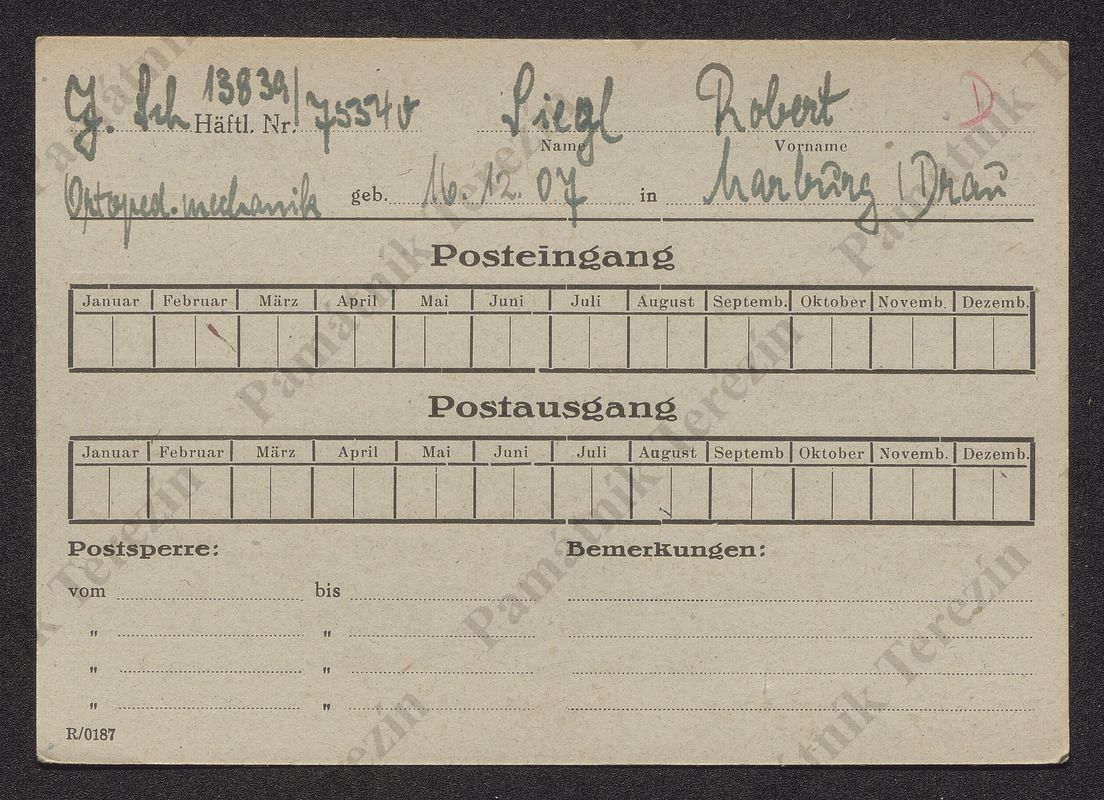 J. Sch 13839/ Häftl. Nr. 75340 Siegl Robert D
Name Vorname
Ortoped. mechanik geb. 16. 12. 07 in Marburg / Drau
Posteingang
Januar Februar März April Mai Juni Juli August Septemb. Oktober Novemb. Dezemb.
Postausgang
Januar Februar März April Mai Juni Juli August Septemb Oktober Novemb. Dezemb.
Postsperre: Bemerkungen:
vom bis
" "
" "
" "
R/0187
Památník Terezín